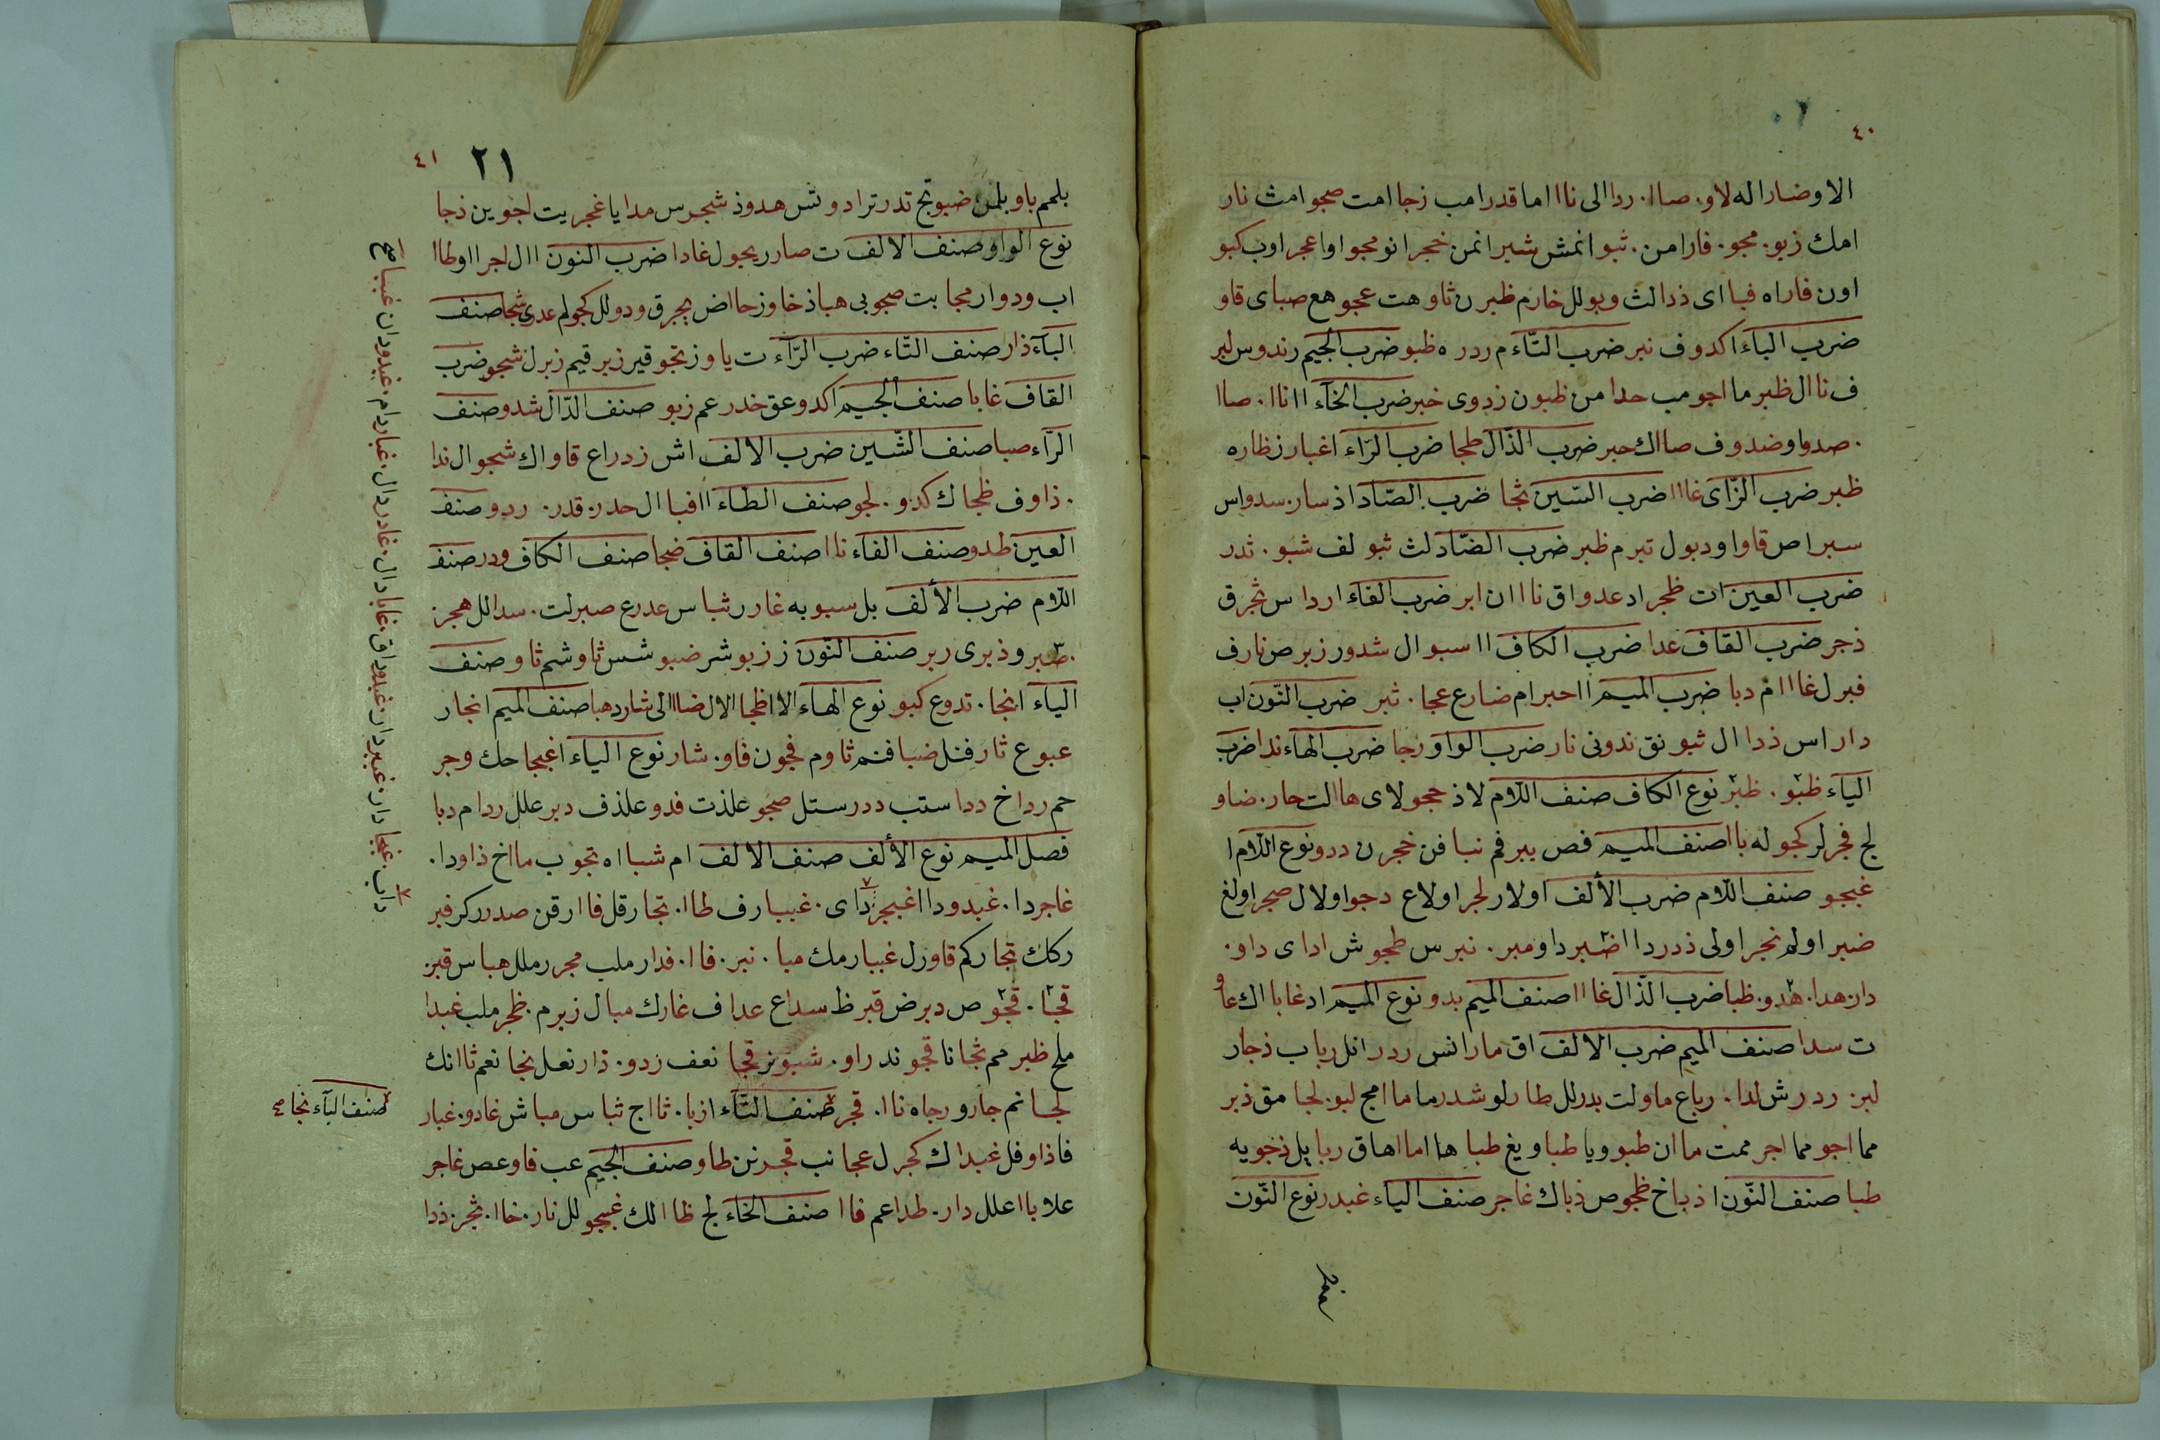 ٤٠
الا وضار اله لاو. صاا. ردا الى ناا اما قدر امب زجا امت صجو امث نار
امك زبو. مجو. فارا من. ثبو انمش شبر انمن خجر انو مجوا وا عجر اوب كبو
اون فاراه فباای ذدا لث وبو لل خارم ظبرن ثاو هت عجو هع صبای قاو
ضرب الباء اكدوف نبر ضرب التّاء م ردره ظبو ضرب الجيم رندوس لبر
ف ناال ظبر ما اجو مب حدا من ظبون زدوی خبر ضرب الخآء اانا. صاا
. صدوا وضدوف صااك حبر ضرب الذّال طجا ضرب الرّاء اغبار زظاره
ظبر ضرب الزّای غااا ضرب السّين ثجا ضرب الصّاد اذسار. سدواس
سبراص قاوا ودبول تبرم ظبر ضرب الضّاد لث ثبو لف شبو. ثدر
ضرب العين ات ظجر اد عدواق نااان ابر ضرب الفاء اردا س ثجرق
ذجر ضرب القاف عدا ضرب الكاف اا سبوال شدور زبرص نارف
فبرل غااام دبا ضرب الميم ااحبرام ضارع عجا. ثبر ضرب النّون اب
داراس ذداال ثبو نق ندو نی نار ضرب الواو رجا ضرب الهاء ندا ضرب
الياء ظبو. ظبر نوع الكاف صنف اللّام لا ذحجو لای هاا لت حار. ضاو
لج فجر لر كجو له باا صنف الميم فص يبر فم نبا فن خجرن ددو نوع اللّام ا
غبجو صنف اللّام ضرب الألف اولار لجر اولاع دجوا ولال صجر اولغ
ضبر اولم نجر اولی ذدر دا اضبر داو مبر. نبرس طجوش ادای داو.
دان هدا. هدو. ظبا ضرب الذّال غااا صنف الميم بدو نوع الميم اد غابا اك عاو
ت سدا صنف الميم ضرب الالف اق مارا نس ردر انل رباب ذجار
لبر. ردرش لدا. رباع ما ولت بدر لل طار لو شدر ما ماا مج لبو. لجا مق ذبر
مما اجو مما اجر ممت ماان طبو ويا طبا ويغ طبا هاا ماا هاق ربا يل ذجو يه
طبا صنف النّون اذباخ ظجوص ذباك غاجر صنف الياء غبدر نوع النّون
٤١
٢١
بلمم باو بلمن ضبو تج تدر ترادو تش هدوذ شجرس مدایا غجر يت اجو ين ذجا
نوع الواو صنف الالف ت صار ريجول غادا ضرب النون اال اجرا وطاا
اب ودوار مجابت صجو بی هباذ خاوزحا اض يجرق ودو لل كجو لم عدری شجا صنف
البآء ذار صنف التّاء ضرب الرّآء ت ياوز تجو قير زبر قيم زبرل شجو ضرب
القاف غابا صنف الجيم اكدو عق خدر عم زبو صنف الدّال شدو صنف
الرّاء صبا صنف الشّين ضرب الالف اش زدراع قاواك شجوال ندا
. ذاوف ظجاك كدو. لجو صنف الطّاء اافباال حدر. قدر. ردو صنف
العين طدو صنف الفاء ناا صنف القاف ضجا صنف الكاف ودر صنف
اللّام ضرب الألف بل سبو به غارر ثباس عدرع صبر لت. سدا لل هجرز
. ضبر وذبری ربر صنف النّون ززبو شر ضبو شس ثاو شم ثاو صنف
الياء ابجا. تدوع كبو نوع الهاء الا اظجا الال ضاا الی شار دهبا صنف الميم انجار
عبوع ثار فنل ضبا فنم ثاوم فجون فاو. شار نوع الياء اغبجا حك وجر
حم رداخ ددا ستب ددر ستل صجو علذت فدو علذف دبر علل ردام دبا
فصل الميم نوع الألف صنف الالف ام شبا اه تجوب ما اخ ذاودا.
غاجردا. غبدودا اغبجر دای. غببارف طاا. تجا رقل فاا رقن صدر ركر فبر
ركك تجا ركم قاو رل غببار مك مبا. نبر. فاا. فدار ملب مجر رملل هباس قبر.
قجا. قجوص دبرض قبرظ سداع عداف غارك مبال زبرم. ظجر ملب غبدا
ملح ظبر مم ثجا نا قجو ند راو. شبو نز قجا نعف زدو. ذار نعل نجا نعم ثا انك
لجا نم جارو رجاه ناا. قجر صنف التّآء ازبا. ثااج ثباس مباش غادو. غبار
فاذا وفل غبداك كجرل عجا نب قجد نن طاو صنف الجيم عب فاو عص غاجر
علا باا علل دار. طدا عم فاا صنف الخآء لج ظاا لك غبجو لل نار. خاا. ثجر. ذدا
صنف البآء نجا صح
داب. غبجا دار. غببر دار. غبدو داق. غابا دال. غادر دال. غبار دام. غبدو دان غببا صح